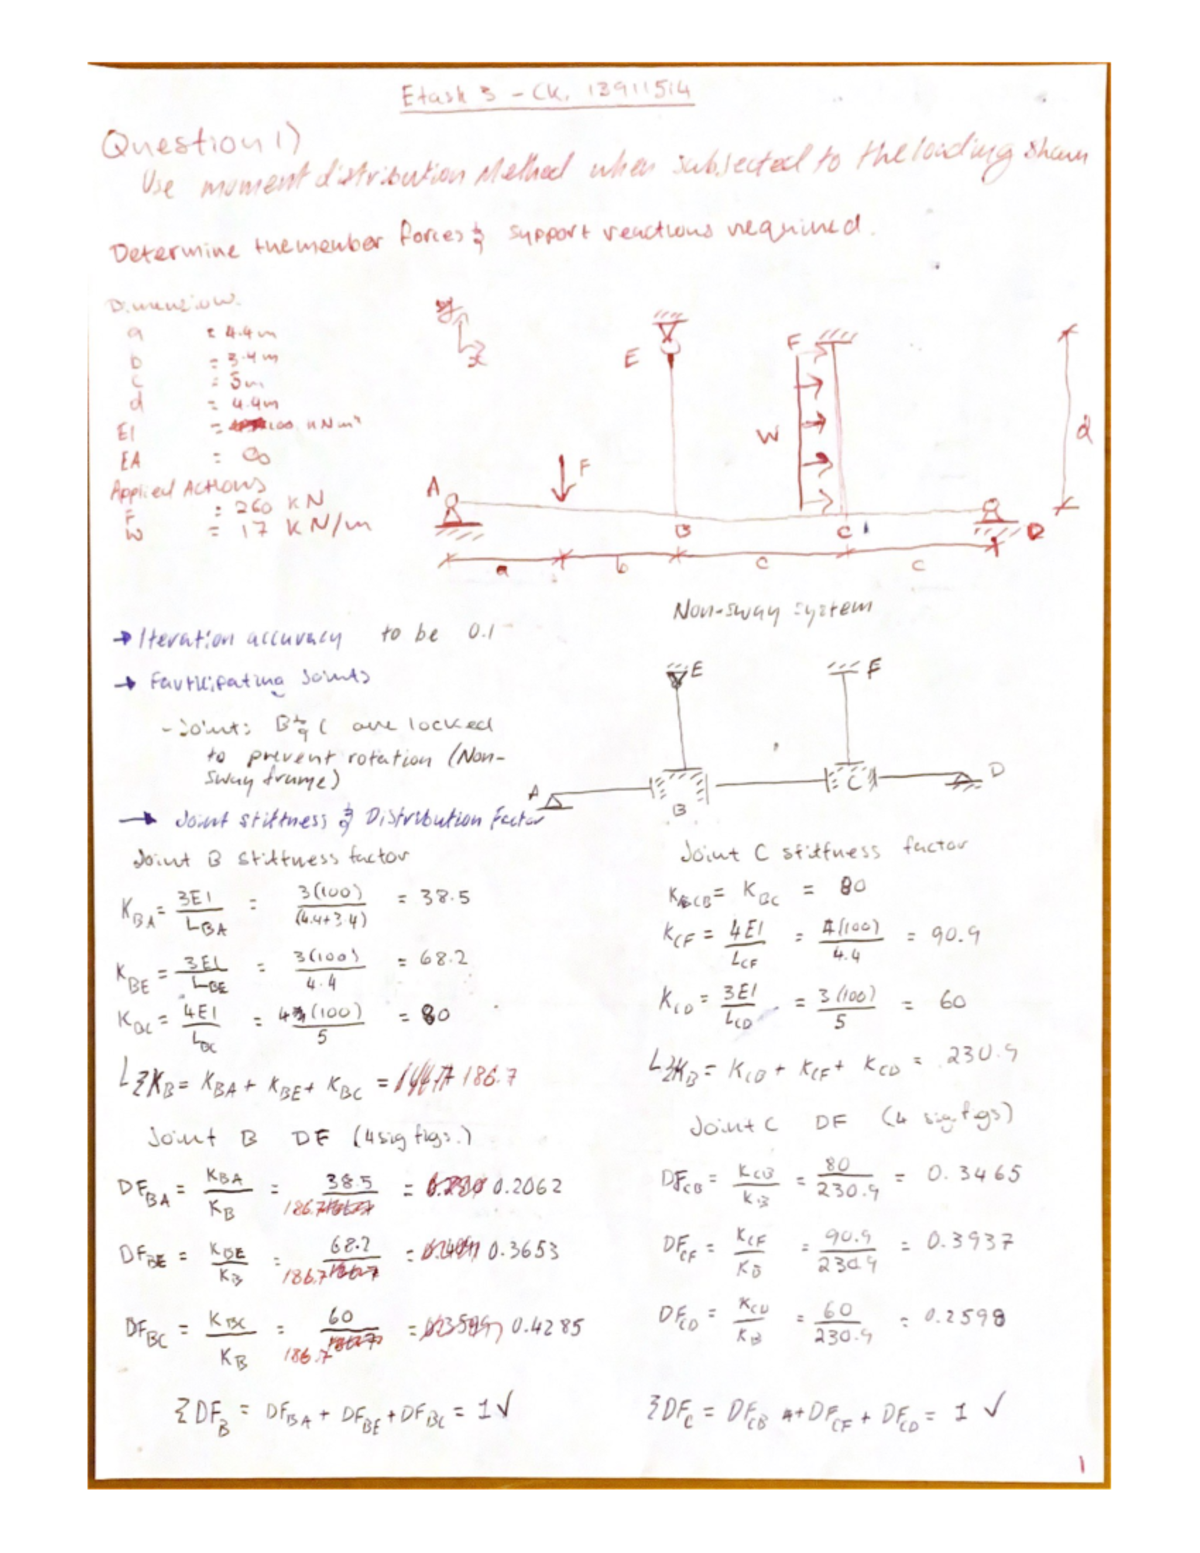 Etask 3 - CK. 13911514
Question 1)
Use moment distribution Method when subjected to the loading shown
Determine the member forces & support reactions required.
Dimensions
a = 4.4m
b = 3.4m
c = 5m
d = 4.4m
EI = 100 kNm²
EA = ∞
Applied Actions
F = 260 KN
W = 17 KN/m
y
x
E
F
W
d
F
A
B
C
D
a
b
c
c
Non-sway system
→ Iteration accuracy to be 0.1
→ Participating Joints
- Joints B & C are locked
to prevent rotation (Non-
sway frame)
E
F
A
B
C
D
→ Joint stiffness & Distribution Factor
Joint B stiffness factor
K_BA = 3EI/L_BA = 3(100)/(4.4+3.4) = 38.5
K_BE = 3EI/L_BE = 3(100)/4.4 = 68.2
K_BC = 4EI/L_BC = 4(100)/5 = 80
L ΣK_B = K_BA + K_BE + K_BC = 186.7
Joint B DF (4 sig figs.)
DF_BA = K_BA/K_B = 38.5/186.7 = 0.2062
DF_BE = K_BE/K_B = 68.2/186.7 = 0.3653
DF_BC = K_BC/K_B = 60/186.7 = 0.4285
ΣDF_B = DF_BA + DF_BE + DF_BC = 1 ✓
Joint C stiffness factor
K_CB = K_BC = 80
K_CF = 4EI/L_CF = 4(100)/4.4 = 90.9
K_CD = 3EI/L_CD = 3(100)/5 = 60
L ΣK_B = K_CB + K_CF + K_CD = 230.9
Joint C DF (4 sig figs)
DF_CB = K_CB/K_B = 80/230.9 = 0.3465
DF_CF = K_CF/K_B = 90.9/230.9 = 0.3937
DF_CD = K_CD/K_B = 60/230.9 = 0.2598
ΣDF_C = DF_CB + DF_CF + DF_CD = 1 ✓
1